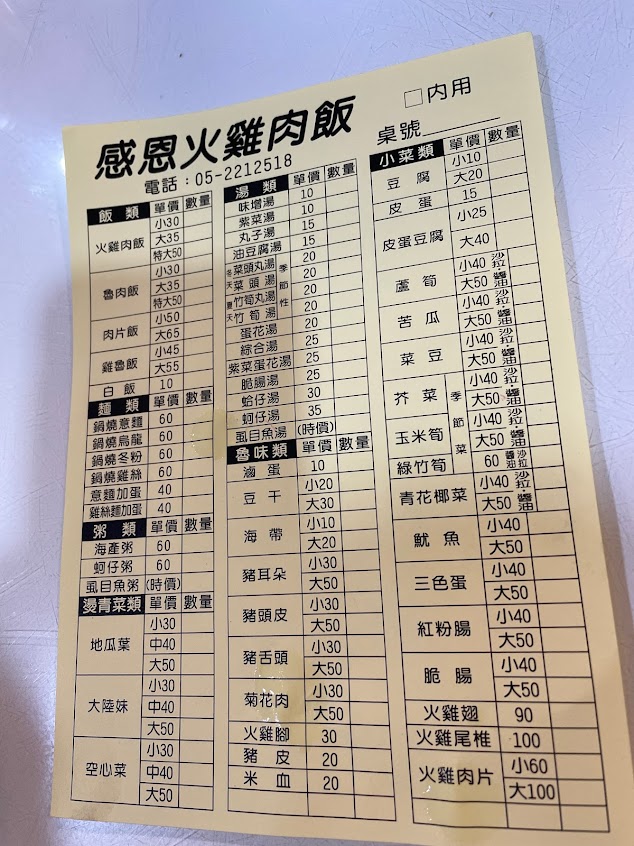 感恩火雞肉飯
電話：05-2212518
□內用
桌號
飯類 單價 數量
火雞肉飯 小30
大35
特大50
魯肉飯 小30
大35
特大50
肉片飯 小50
大65
雞魯飯 小45
大55
白飯 10
麵類 單價 數量
鍋燒意麵 60
鍋燒烏龍 60
鍋燒冬粉 60
鍋燒雞絲 60
意麵加蛋 40
雞絲麵加蛋 40
粥類 單價 數量
海產粥 60
蚵仔粥 60
虱目魚粥 (時價)
燙青菜類 單價 數量
地瓜葉 小30
中40
大50
大陸妹 小30
中40
大50
空心菜 小30
中40
大50
湯類 單價 數量
味增湯 10
紫菜湯 10
丸子湯 15
油豆腐湯 15
冬天 菜頭丸湯 季節性 20
菜頭湯 20
夏天 竹筍丸湯 20
竹筍湯 20
蛋花湯 20
綜合湯 25
紫菜蛋花湯 25
脆腸湯 25
蛤仔湯 30
蚵仔湯 35
虱目魚湯 (時價)
魯味類 單價 數量
滷蛋 10
豆干 小20
大30
海帶 小10
大20
豬耳朵 小30
大50
豬頭皮 小30
大50
豬舌頭 小30
大50
菊花肉 小30
大50
火雞腳 30
豬皮 20
米血 20
小菜類 單價 數量
豆腐 小10
大20
皮蛋 15
皮蛋豆腐 小25
大40
蘆筍 小40 沙拉·醬油
大50
苦瓜 小40 沙拉·醬油
大50
菜豆 小40 沙拉·醬油
大50
芥菜 季節菜 小40 沙拉·醬油
大50
玉米筍 小40 沙拉·醬油
大50
綠竹筍 60 醬油 沙拉
青花椰菜 小40 沙拉·醬油
大50
魷魚 小40
大50
三色蛋 小40
大50
紅粉腸 小40
大50
脆腸 小40
大50
火雞翅 90
火雞尾椎 100
火雞肉片 小60
大100